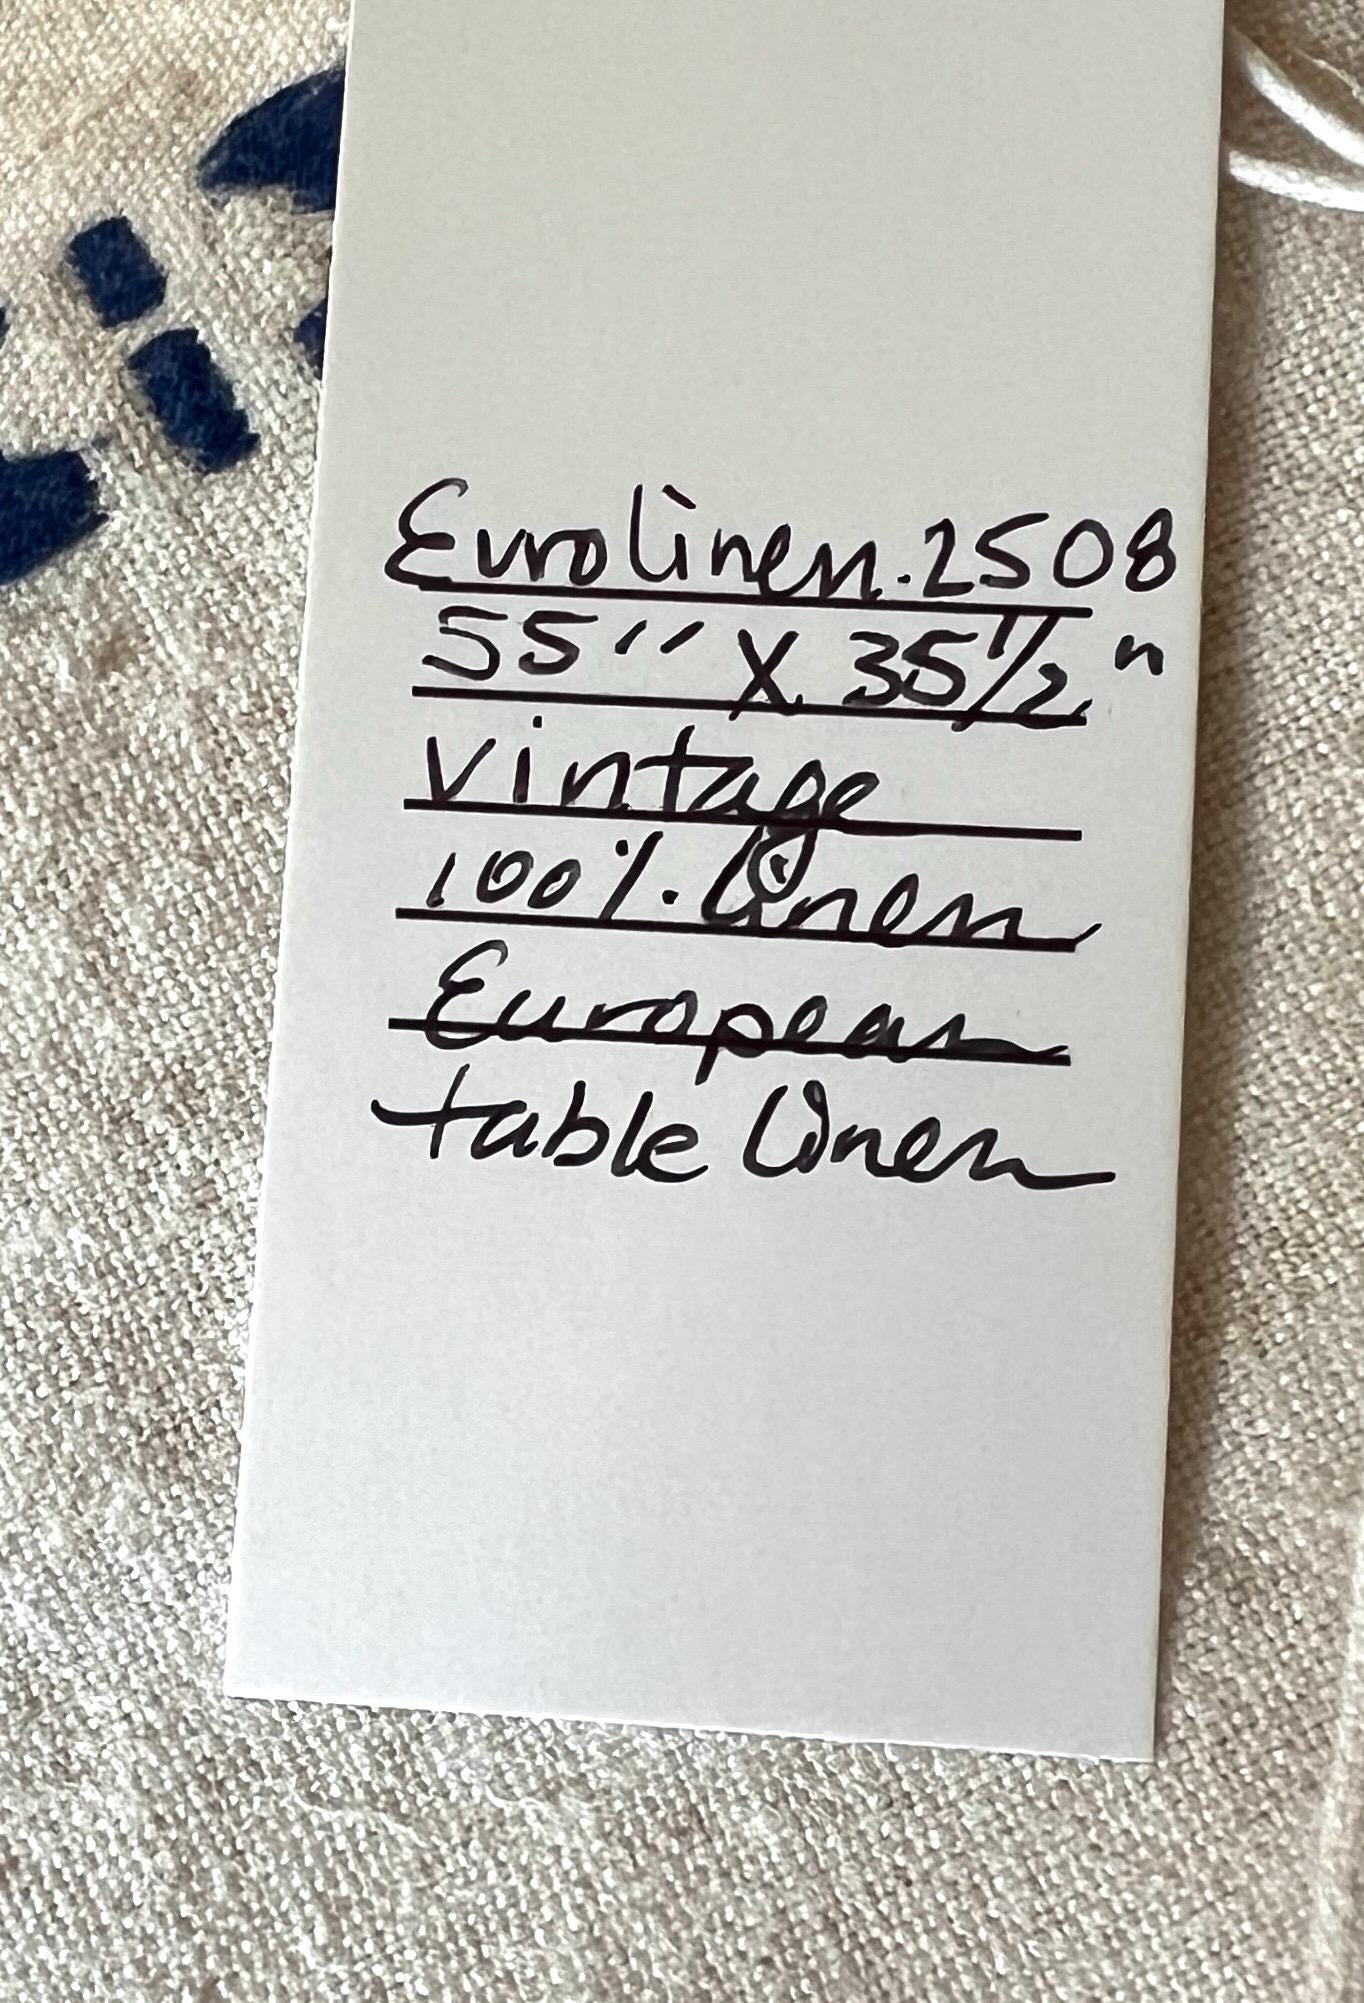 Eurolinen.2508
55" X 35 1/2"
Vintage
100% linen
European
table linen